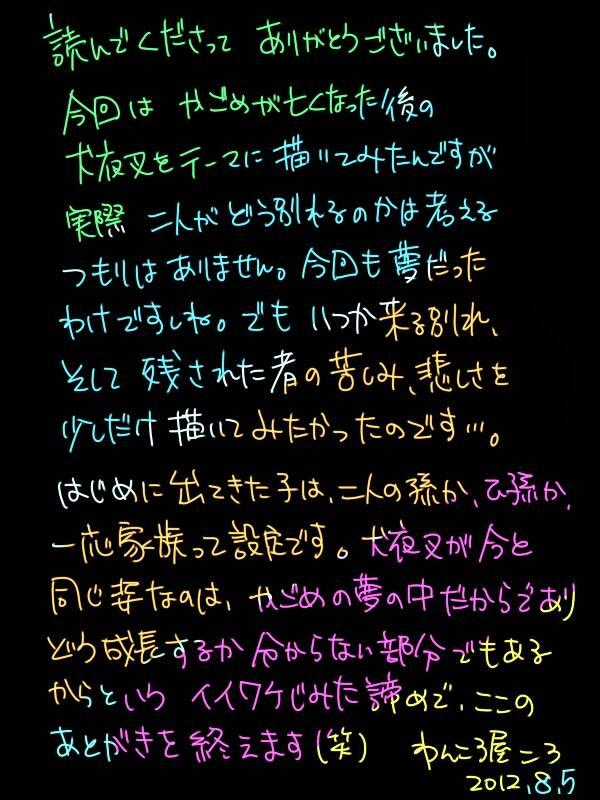 読んでくださって ありがとうございました。
今回は かごめが亡くなった後の
犬夜叉をテーマに 描いてみたんですが
実際 二人がどう別れるのかは考える
つもりはありません。今回も夢だった
わけですしね。でも いつか来る別れ、
そして 残された者の苦しみ、悲しさを
少しだけ 描いてみたかったのです…。
はじめに出てきた子は、二人の孫か、ひ孫か、
一応家族って設定です。犬夜叉が今と
同じ姿なのは、かごめの夢の中だからであり
どう成長するか分からない部分でもある
からという イイワケじみた諦めで、ここの
あとがきを終えます(笑) わんころ屋ころ
2012.8.5